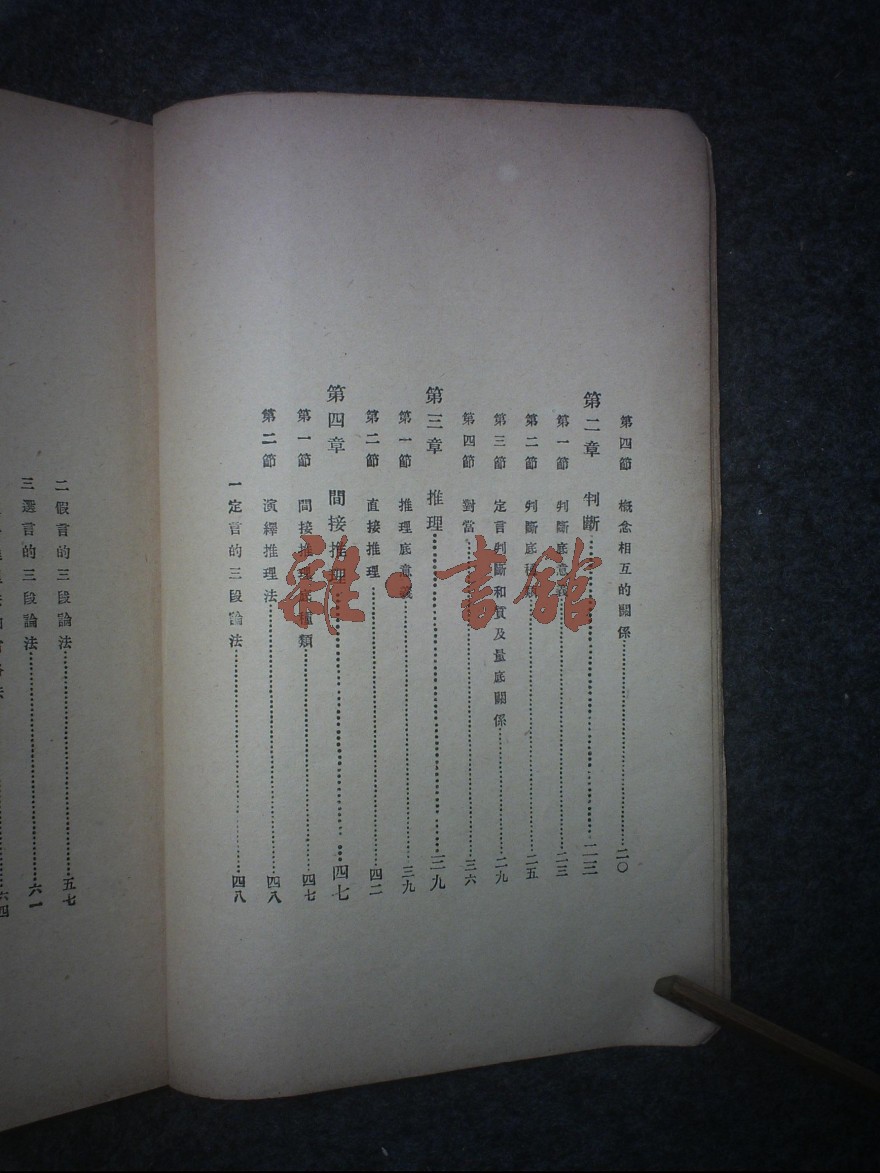 第四節 概念相互的關係……二〇
第二章 判斷……二三
第一節 判斷底意義……二三
第二節 判斷底種類……二五
第三節 定言判斷和質及量底關係……二九
第四節 對當……三六
第三章 推理……三九
第一節 推理底意義……三九
第二節 直接推理……四二
第四章 間接推理……四七
第一節 間接推理底種類……四七
第二節 演繹推理法……四八
一 定言的三段論法……四八
二 假言的三段論法……五七
三 選言的三段論法……六一
六四
雜·書館